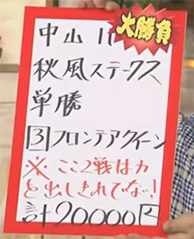 大勝負
中山11
秋風ステークス
単勝
③フロンテアクイーン
※ここ2戦は力
を出しきれてない!
計20000円